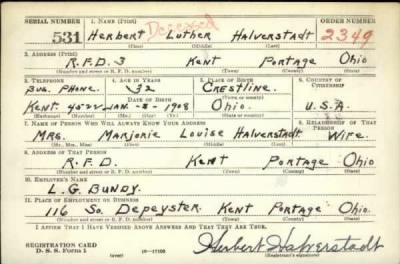 SERIAL NUMBER 1. NAME (Print) ORDER NUMBER
Deceased
531 Herbert Luther Halverstadt 2349
(First) (Middle) (Last)
2. ADDRESS (Print)
R.F.D. 3 Kent Portage Ohio
(Number and street or R. F. D. number) (Town) (County) (State)
3. TELEPHONE 4. AGE IN YEARS 5. PLACE OF BIRTH 6. COUNTRY OF CITIZENSHIP
Bus. Phone. 32 Crestline.
DATE OF BIRTH (Town or county)
Kent. 4522 Jan - 8 - 1908 Ohio. U.S.A.
(Exchange) (Number) (Mo.) (Day) (Yr.) (State or country)
7. NAME OF PERSON WHO WILL ALWAYS KNOW YOUR ADDRESS 8. RELATIONSHIP OF THAT PERSON
Mrs. Marjorie Louise Halverstadt Wife.
(Mr., Mrs., Miss) (First) (Middle) (Last)
9. ADDRESS OF THAT PERSON
R.F.D. Kent Portage Ohio
(Number and street or R. F. D. number) (Town) (County) (State)
10. EMPLOYER'S NAME
L.G. Bundy.
11. PLACE OF EMPLOYMENT OR BUSINESS
116 So. Depeyster. Kent Portage Ohio.
(Number and street or R. F. D. number) (Town) (County) (State)
I AFFIRM THAT I HAVE VERIFIED ABOVE ANSWERS AND THAT THEY ARE TRUE.
REGISTRATION CARD
D. S. S. Form 1 (over) Herbert Halverstadt
(Registrant's signature)